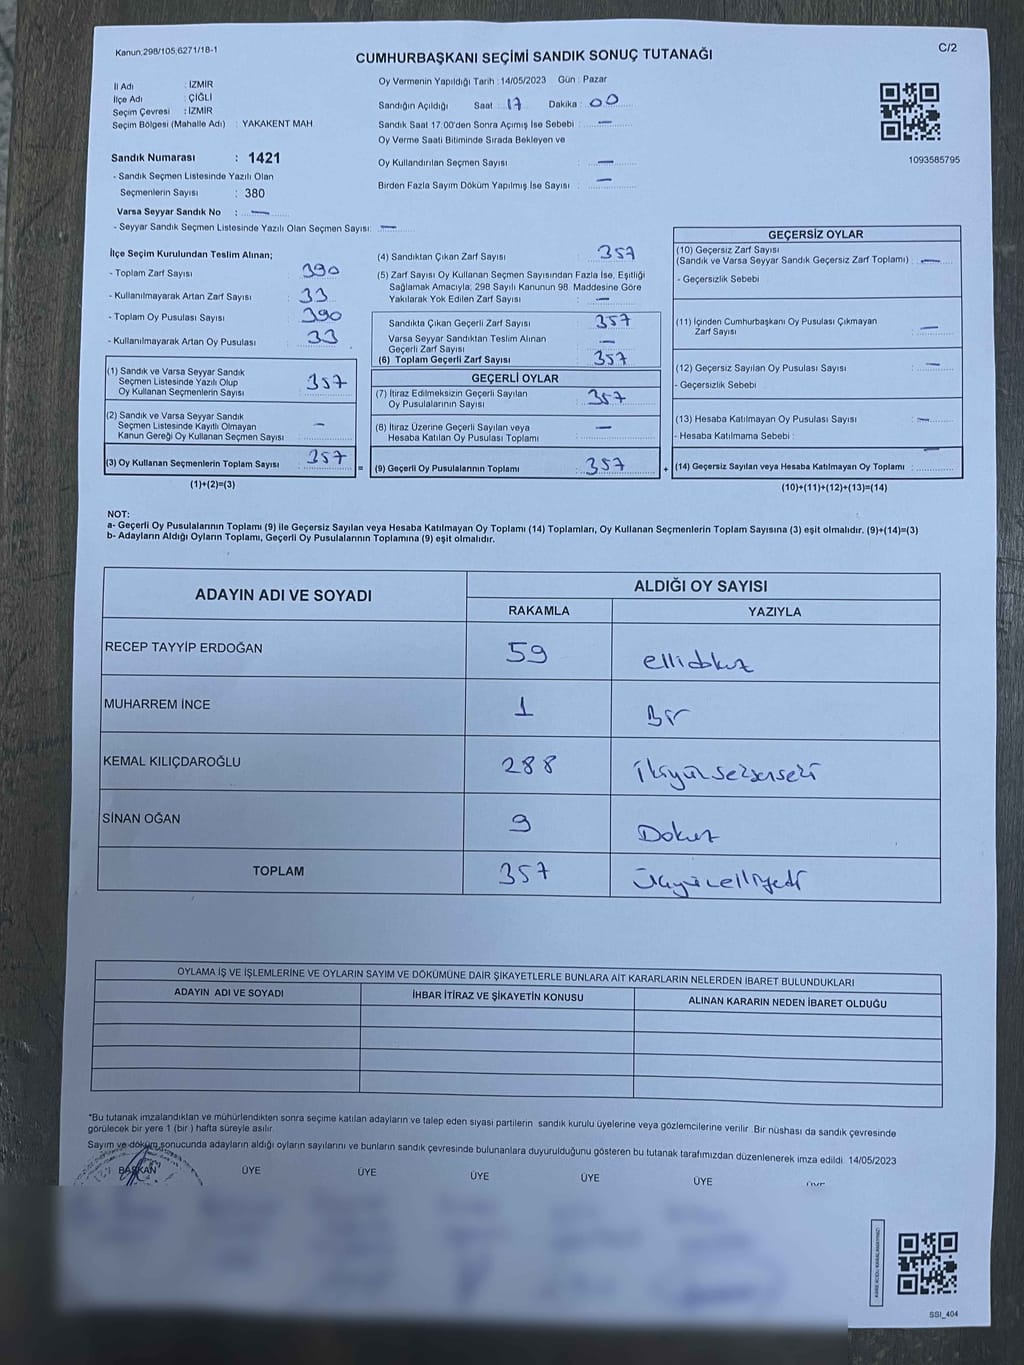 Kanun,298/105,6271/18-1
C/2
CUMHURBAŞKANI SEÇİMİ SANDIK SONUÇ TUTANAĞI
İl Adı : İZMİR
İlçe Adı : ÇİĞLİ
Seçim Çevresi : İZMİR
Seçim Bölgesi (Mahalle Adı) : YAKAKENT MAH
Sandık Numarası : 1421
- Sandık Seçmen Listesinde Yazılı Olan
Seçmenlerin Sayısı : 380
Varsa Seyyar Sandık No : —
- Seyyar Sandık Seçmen Listesinde Yazılı Olan Seçmen Sayısı: —
Oy Vermenin Yapıldığı Tarih : 14/05/2023 Gün : Pazar
Sandığın Açıldığı Saat : 17 Dakika : 00
Sandık Saat 17:00'den Sonra Açımış İse Sebebi : —
Oy Verme Saati Bitiminde Sırada Bekleyen ve
Oy Kullandırılan Seçmen Sayısı : —
Birden Fazla Sayım Döküm Yapılmış İse Sayısı : —
1093585795
İlçe Seçim Kurulundan Teslim Alınan;
- Toplam Zarf Sayısı : 390
- Kullanılmayarak Artan Zarf Sayısı : 33
- Toplam Oy Pusulası Sayısı : 390
- Kullanılmayarak Artan Oy Pusulası : 33
(1) Sandık ve Varsa Seyyar Sandık
Seçmen Listesinde Yazılı Olup
Oy Kullanan Seçmenlerin Sayısı : 357
(2) Sandık ve Varsa Seyyar Sandık
Seçmen Listesinde Kayıtlı Olmayan
Kanun Gereği Oy Kullanan Seçmen Sayısı : —
(3) Oy Kullanan Seçmenlerin Toplam Sayısı : 357
(1)+(2)=(3)
(4) Sandıktan Çıkan Zarf Sayısı : 357
(5) Zarf Sayısı Oy Kullanan Seçmen Sayısından Fazla İse, Eşitliği
Sağlamak Amacıyla; 298 Sayılı Kanunun 98. Maddesine Göre
Yakılarak Yok Edilen Zarf Sayısı : —
Sandıkta Çıkan Geçerli Zarf Sayısı : 357
Varsa Seyyar Sandıktan Teslim Alınan
Geçerli Zarf Sayısı : —
(6) Toplam Geçerli Zarf Sayısı : 357
GEÇERLİ OYLAR
(7) İtiraz Edilmeksizin Geçerli Sayılan
Oy Pusulalarının Sayısı : 357
(8) İtiraz Üzerine Geçerli Sayılan veya
Hesaba Katılan Oy Pusulası Toplamı : —
= (9) Geçerli Oy Pusulalarının Toplamı : 357
GEÇERSİZ OYLAR
(10) Geçersiz Zarf Sayısı
(Sandık ve Varsa Seyyar Sandık Geçersiz Zarf Toplamı) : —
- Geçersizlik Sebebi
(11) İçinden Cumhurbaşkanı Oy Pusulası Çıkmayan
Zarf Sayısı : —
(12) Geçersiz Sayılan Oy Pusulası Sayısı : —
- Geçersizlik Sebebi
(13) Hesaba Katılmayan Oy Pusulası Sayısı : —
- Hesaba Katılmama Sebebi :
+ (14) Geçersiz Sayılan veya Hesaba Katılmayan Oy Toplamı : —
(10)+(11)+(12)+(13)=(14)
NOT:
a- Geçerli Oy Pusulalarının Toplamı (9) ile Geçersiz Sayılan veya Hesaba Katılmayan Oy Toplamı (14) Toplamları, Oy Kullanan Seçmenlerin Toplam Sayısına (3) eşit olmalıdır. (9)+(14)=(3)
b- Adayların Aldığı Oyların Toplamı, Geçerli Oy Pusulalarının Toplamına (9) eşit olmalıdır.
ADAYIN ADI VE SOYADI ALDIĞI OY SAYISI
RAKAMLA YAZIYLA
RECEP TAYYİP ERDOĞAN 59 ellidokuz
MUHARREM İNCE 1 Bir
KEMAL KILIÇDAROĞLU 288 ikiyüzseksensekiz
SİNAN OĞAN 9 Dokuz
TOPLAM 357 üçyüzelliyedi
OYLAMA İŞ VE İŞLEMLERİNE VE OYLARIN SAYIM VE DÖKÜMÜNE DAİR ŞİKAYETLERLE BUNLARA AİT KARARLARIN NELERDEN İBARET BULUNDUKLARI
ADAYIN ADI VE SOYADI İHBAR İTİRAZ VE ŞİKAYETİN KONUSU ALINAN KARARIN NEDEN İBARET OLDUĞU
*Bu tutanak imzalandıktan ve mühürlendikten sonra seçime katılan adayların ve talep eden siyasi partilerin sandık kurulu üyelerine veya gözlemcilerine verilir. Bir nüshası da sandık çevresinde
görülecek bir yere 1 (bir ) hafta süreyle asılır.
Sayım ve döküm sonucunda adayların aldığı oyların sayılarını ve bunların sandık çevresinde bulunanlara duyurulduğunu gösteren bu tutanak tarafımızdan düzenlenerek imza edildi. 14/05/2023
BAŞKAN ÜYE ÜYE ÜYE ÜYE ÜYE ÜYE
SSI_404